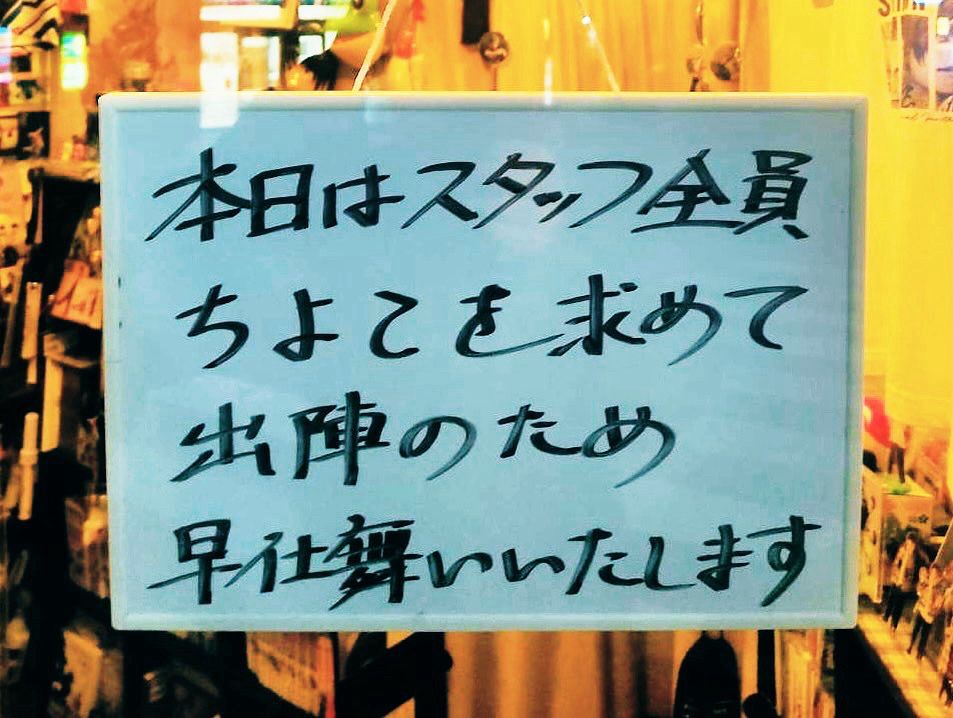 本日はスタッフ全員
ちよこを求めて
出陣のため
早仕舞いいたします